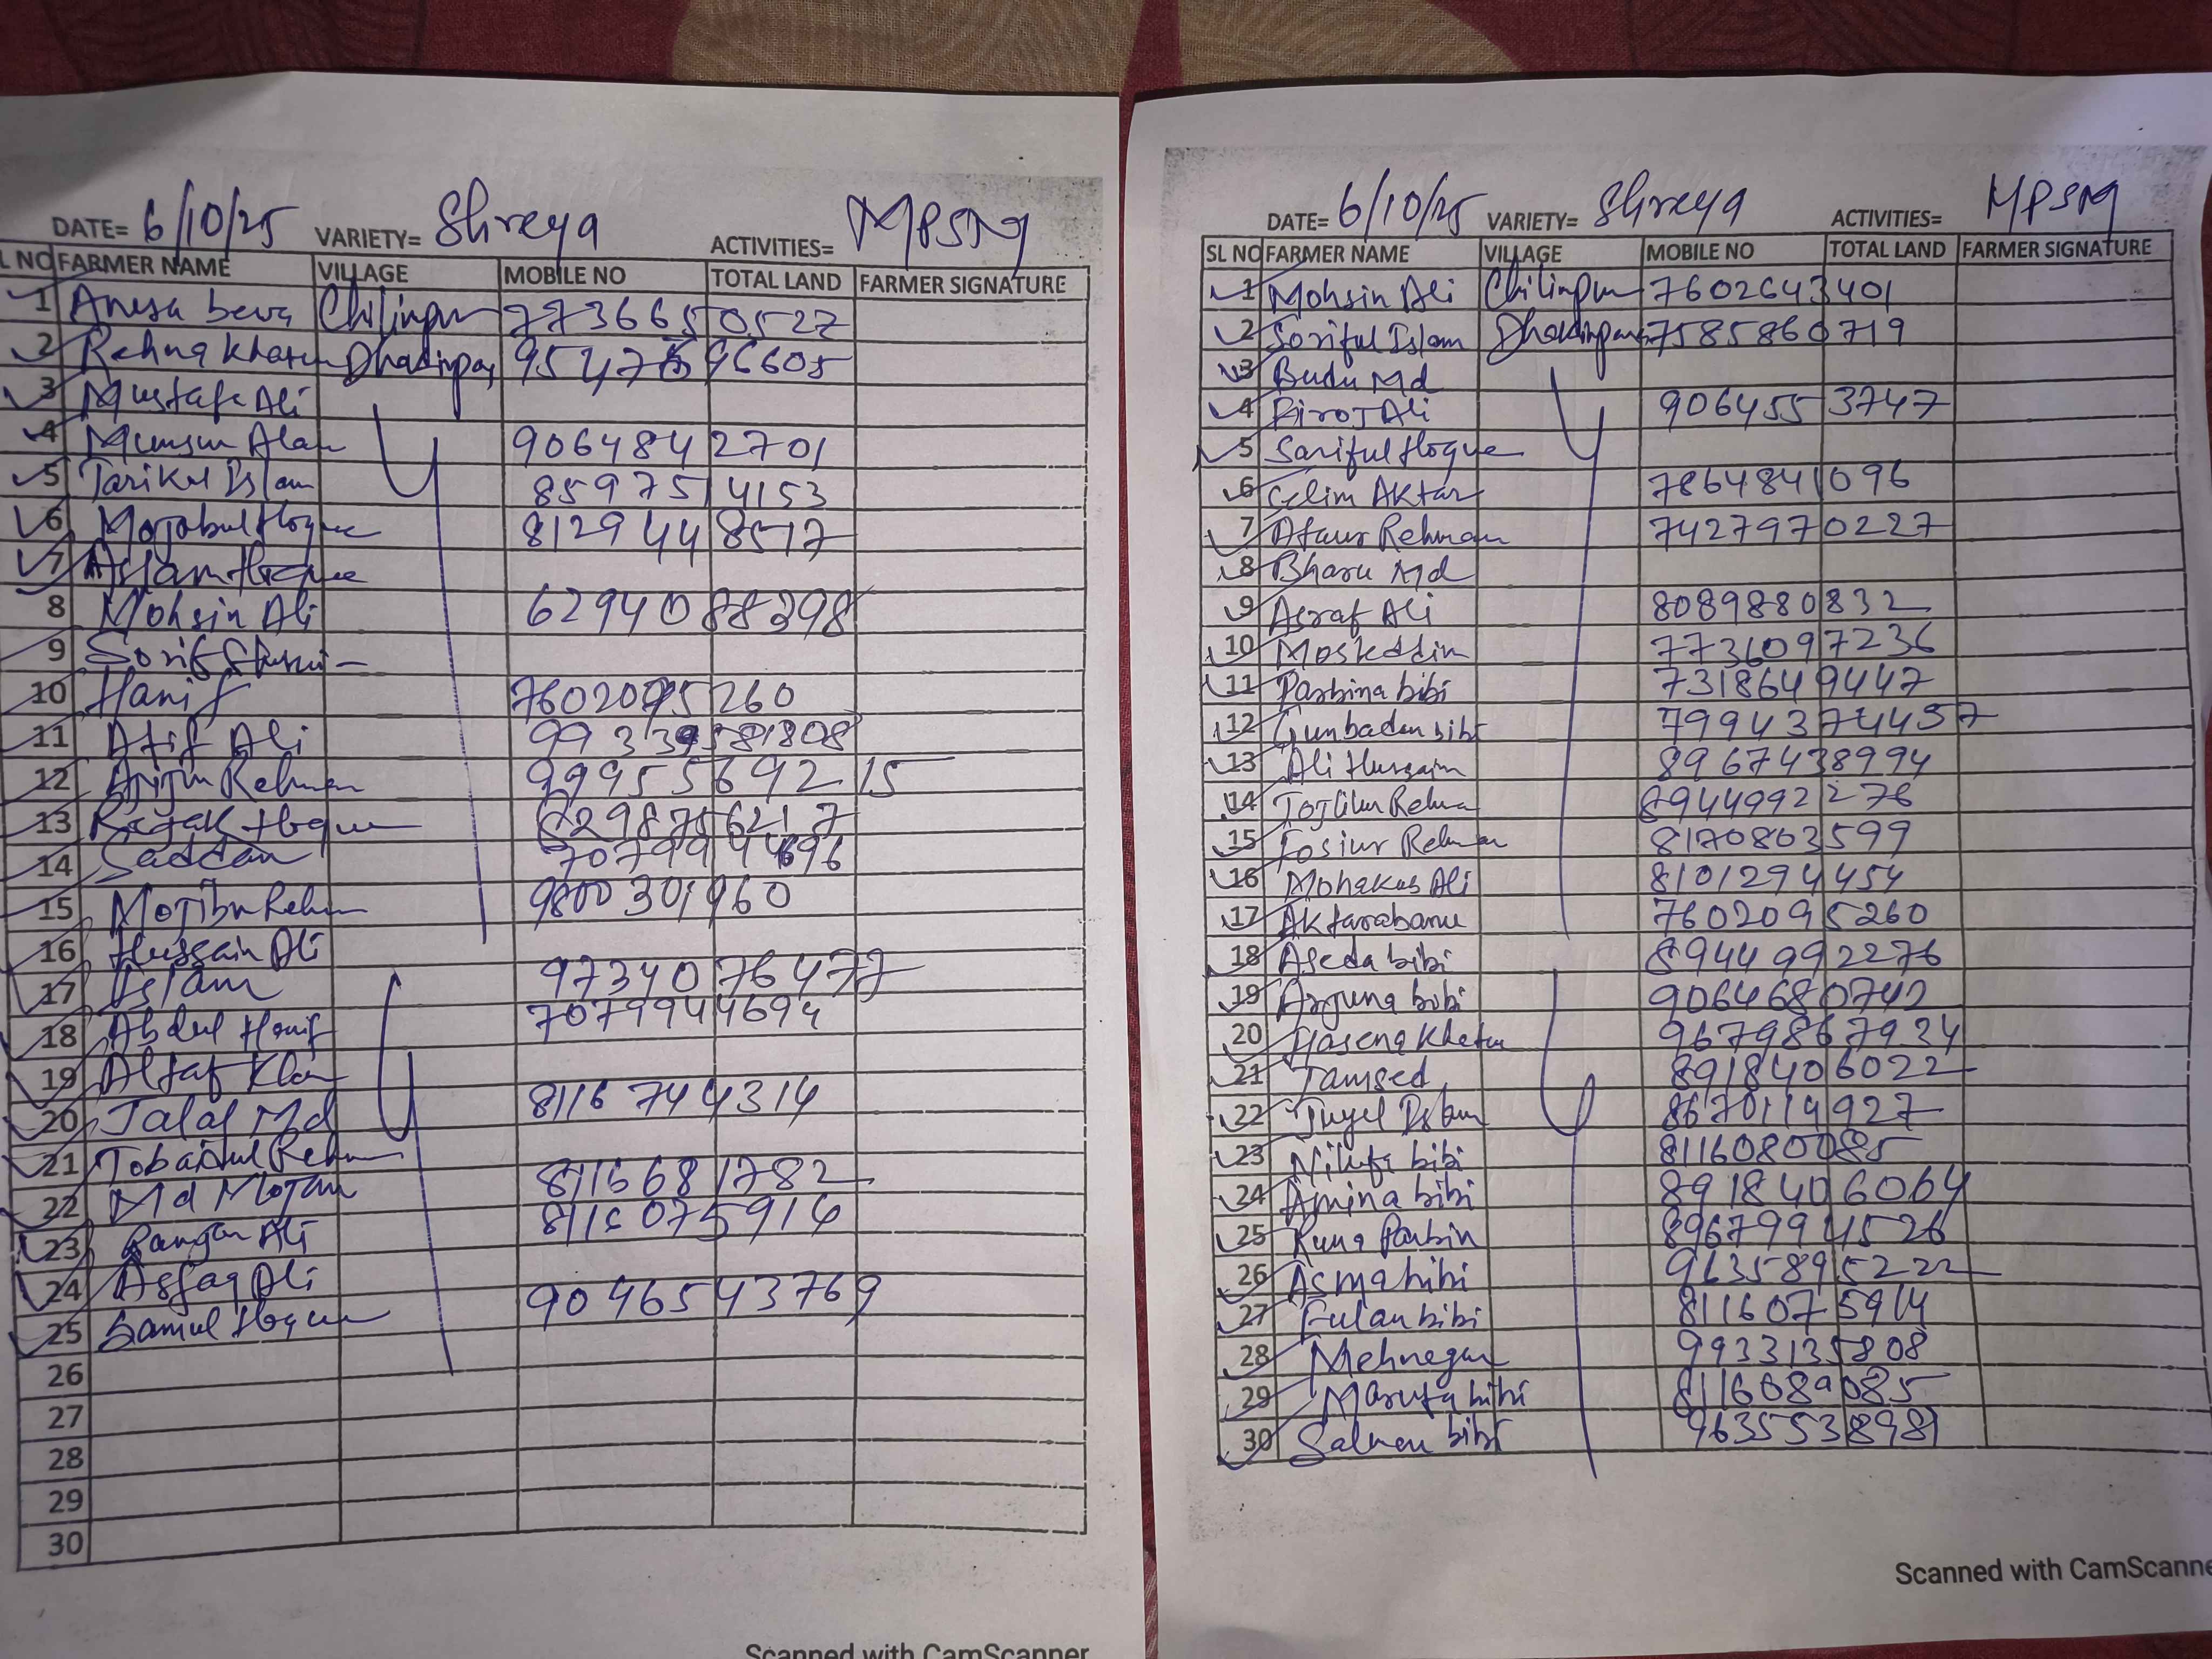 DATE= 6/10/25 VARIETY= Shreya ACTIVITIES= MPSM
L NO FARMER NAME VILLAGE MOBILE NO TOTAL LAND FARMER SIGNATURE
1 Anesa bewa Chilimpur 7736650527
2 Rehna Khatun Dhadinpara
3 Mustafa Ali
4 Munsur Alam 9064842701
5 Tarikul Islam 8597514153
6 Mojabul Hoque 8129448517
7 Aslam Hoque
8 Mohsin Ali 6294088398
9 Sorif
10 Hanif 7602095260
11 Atif Ali
12 Rehman 9995569215
13 Razak Hoque
14 Saddam
15 Mojibu Rehm 9800301960
16 Hussain Ali
17 Islam 9734076477
18 Abdul Hanif 7079944694
19 Altaf Khan
20 Jalal Md 8116744314
21 Tobaidul Rehm
22 Md Mojam 8116681782
23 Ramjan Ali 8116075914
24 Asfaq Ali
25 Samul Hoque 9046543769
26
27
28
29
30
Scanned with CamScanner
DATE= 6/10/25 VARIETY= Shreya ACTIVITIES= MPSM
SL NO FARMER NAME VILLAGE MOBILE NO TOTAL LAND FARMER SIGNATURE
1 Mohsin Ali Chilimpur 7602643401
2 Soriful Islam Dhadinpara 7585860719
3 Budu Md
4 Firoj Ali 9064553747
5 Sariful Hoque
6 Celim Aktar 7864841096
7 Ataur Rehman 7427970227
8 Bharu Md
9 Asraf Ali 8089880832
10 Moskeddin 7736097236
11 Parbina bibi 7318649447
12 Gunbadan bibi 7994374457
13 Ali Hussain 8967438994
14 Tojilur Rehma 8944992276
15 Fosiur Rehman 8170803599
16 Mohakas Ali 8101294454
17 Aktarabanu 7602095260
18 Aseda bibi 8944992276
19 Arjuna bibi 9064680742
20 Hasena Khatun 9679867934
21 Tamsed 8918406022
22 Juyel Islam 8670114927
23 Nilufa bibi 8116080085
24 Amina bibi 8918406064
25 Runa Parbin 8967994526
26 Asma bibi 9635895222
27 Fulan bibi 8116075914
28 Mehnegar 9933135808
29 Marufa bibi 8116089085
30 Salmon bibi 9635538981
Scanned with CamScanne